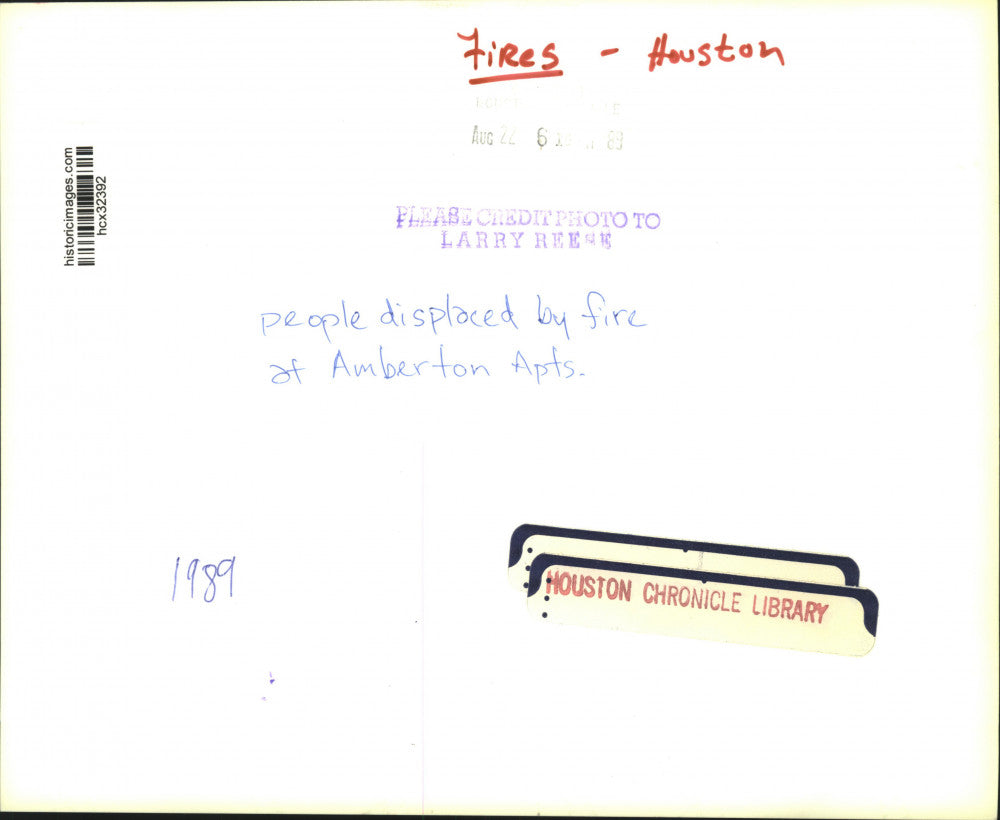 Fires - Houston
Aug 22 6 89
PLEASE CREDIT PHOTO TO
LARRY REESE
people displaced by fire
at Amberton Apts.
1989
HOUSTON CHRONICLE LIBRARY
historicimages.com
hcx32392